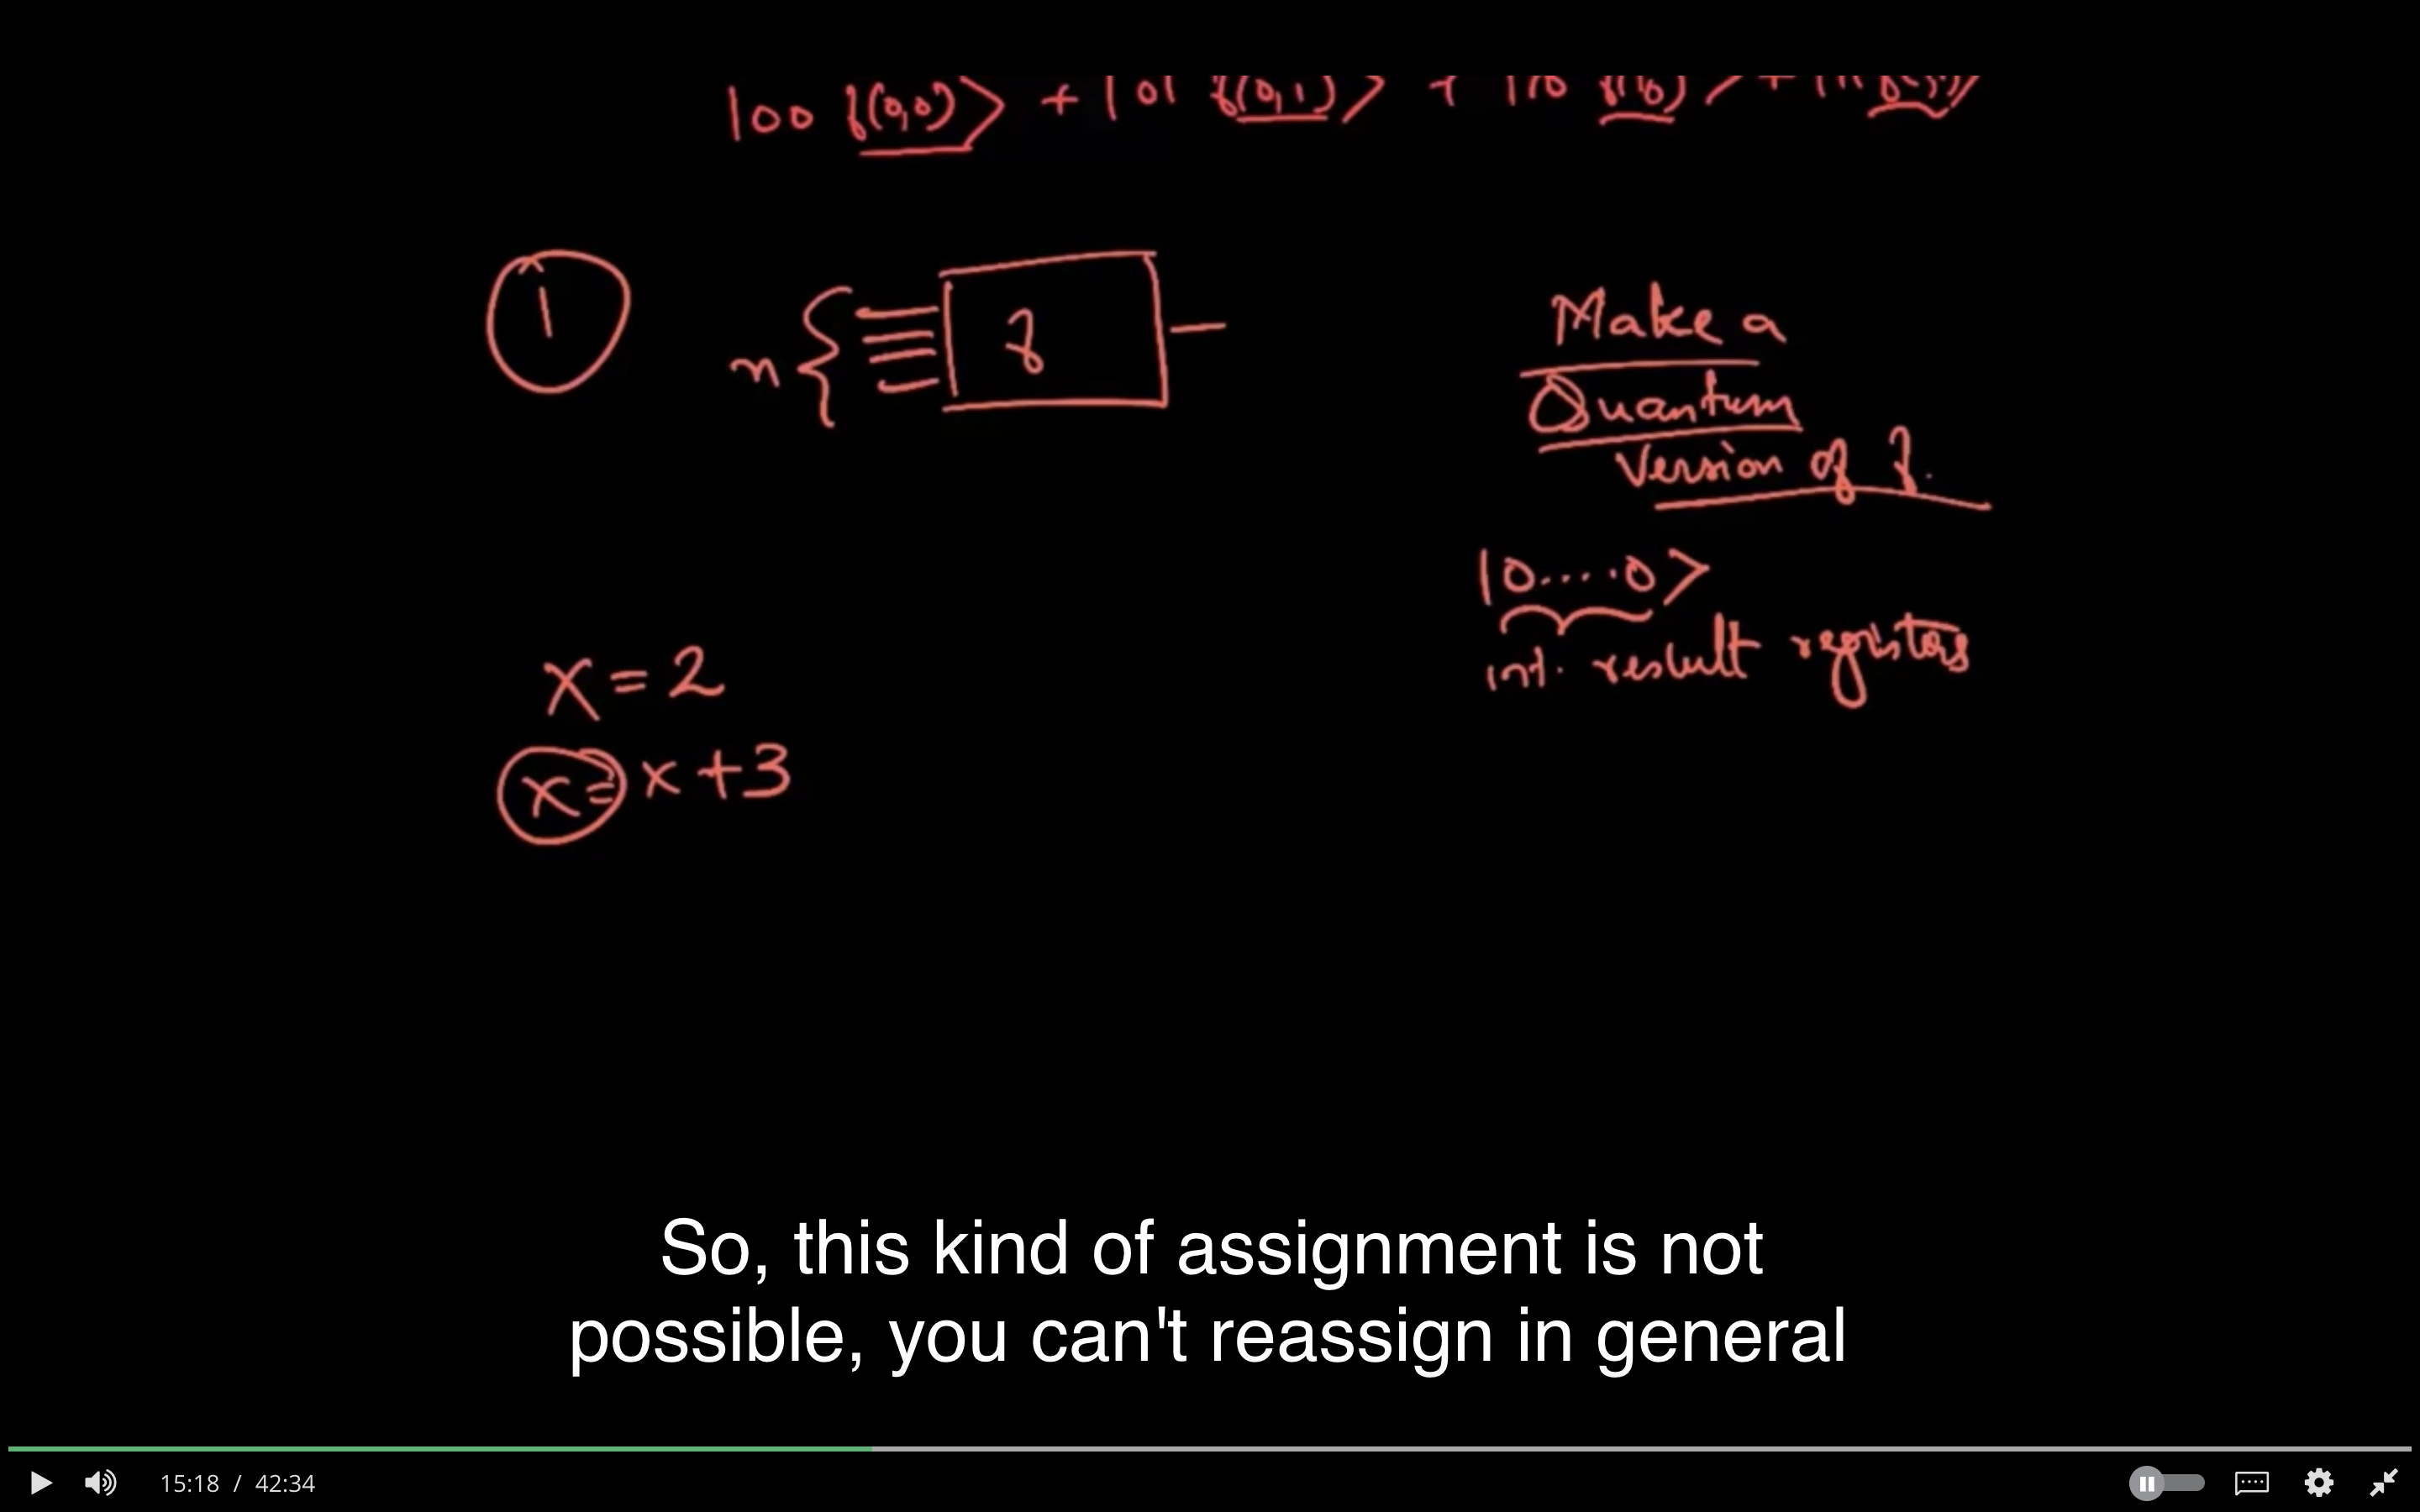 |00 f(0,0)> + |01 f(0,1)> + |10 f(1,0)> + |11
1
n { f
Make a
Quantum
Version of f.
|0....0>
int. result registors
x = 2
x = x + 3
So, this kind of assignment is not
possible, you can't reassign in general
15:18 / 42:34